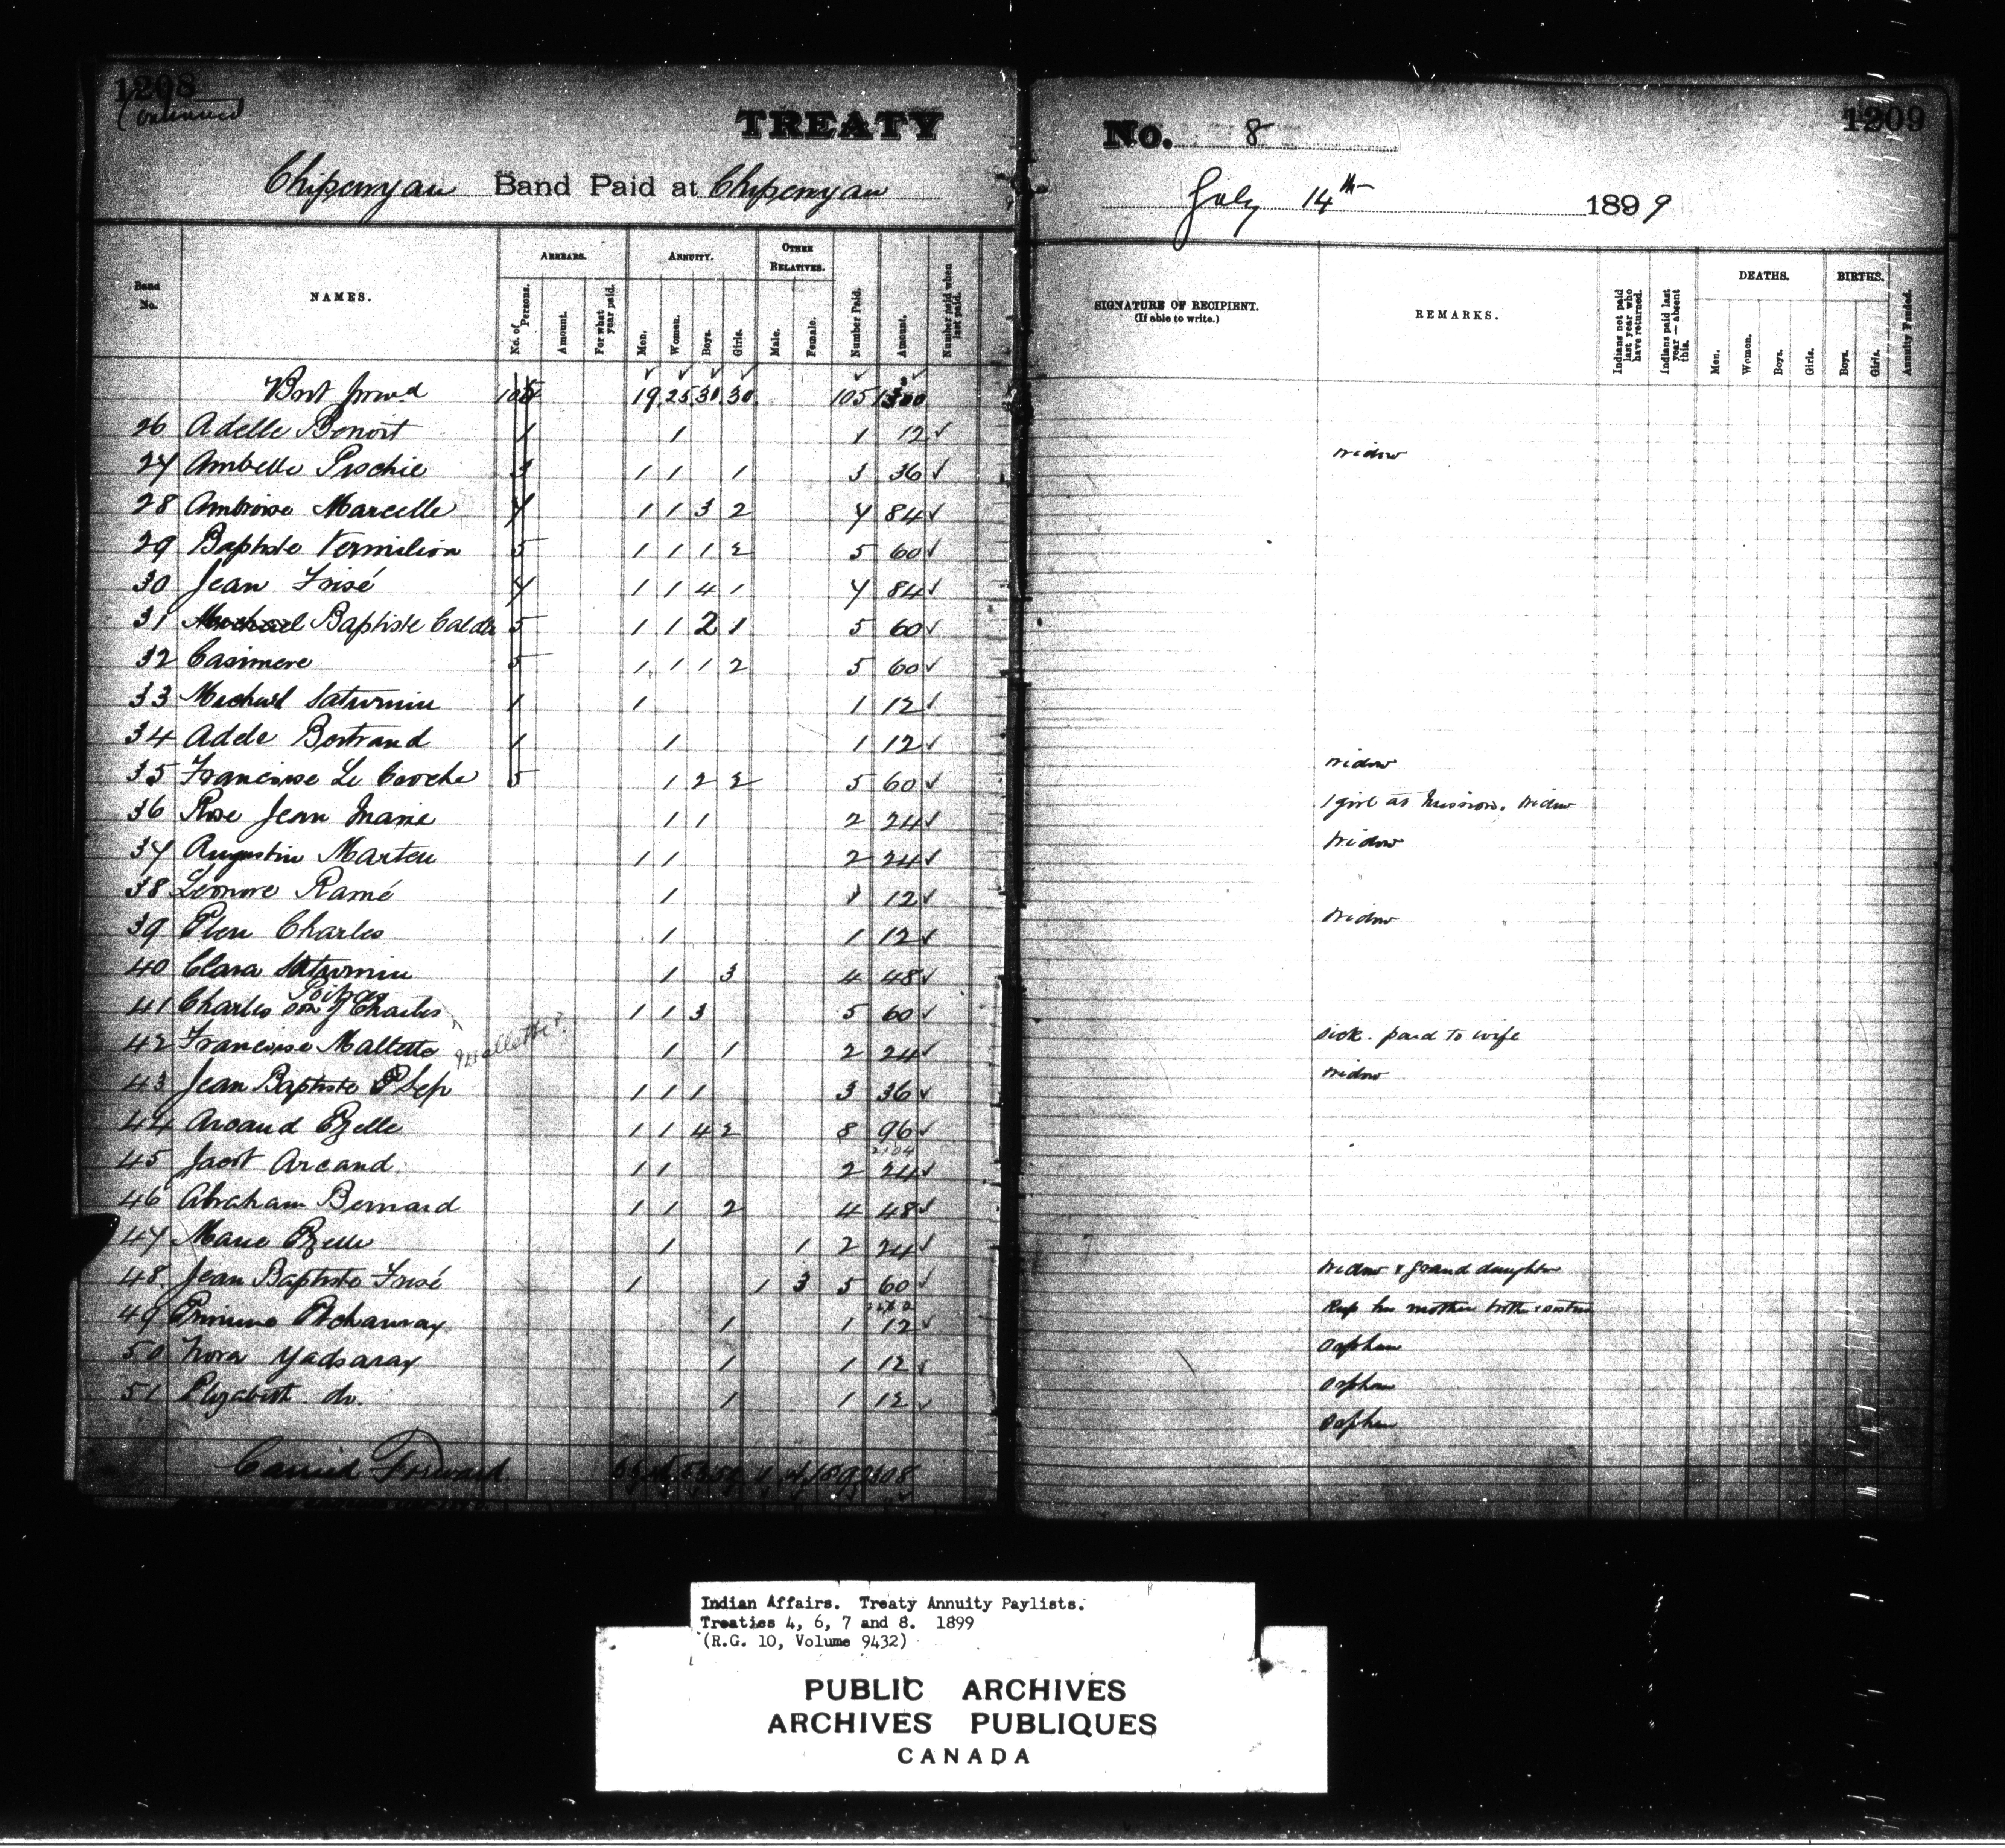 1208
Continued
TREATY No. 8
1209
Chipewyan Band Paid at Chipewyan
July 14th 1899
Band No.
NAMES.
ARREARS.
No. of Persons.
Amount.
For what year paid.
ANNUITY.
Men.
Women.
Boys.
Girls.
OTHER RELATIVES.
Male.
Female.
Number Paid.
Amount.
Number paid when last paid.
SIGNATURE OF RECIPIENT.
(If able to write.)
REMARKS.
Indians not paid last year who have returned.
Indians paid last year — absent this.
DEATHS.
Men.
Women.
Boys.
Girls.
BIRTHS.
Boys.
Girls.
Annuity Funded.
Brot forwd 19 25 30 30 105
26 Adelle Benoit 1 1 1 12 widow
27 Ambelle Pischie 3 1 1 1 3 36
28 Ambroise Marcelle 7 1 1 3 2 7 84
29 Baptiste Vermilion 5 1 1 1 2 5 60
30 Jean Frisé 7 1 1 4 1 7 84
31 Baptiste Calder 5 1 1 2 1 5 60
32 Casimere 5 1 1 1 2 5 60
33 Michael Saturnin 1 1 1 12
34 Adele Bertrand 1 1 1 12 widow
35 Francoise Le Coroche 5 1 2 2 5 60 1 girl at Mission. widow
36 Rose Jean Marie 1 1 2 24 widow
37 Augustin Marten 1 1 2 24
38 Leonore Ramé 1 1 12 widow
39 Elen Charles 1 1 12
40 Clara Saturnin 1 3 4 48
41 Charles son of Charles 1 1 3 5 60 sick. paid to wife
42 Francoise Maltette 1 1 2 24 widow
Mallette?
43 Jean Baptiste 1 1 1 3 36
44 Arcand Ezelle 1 1 4 2 8 96
2104
45 Jacot Arcand 1 1 2 24
46 Abraham Bernard 1 1 2 4 48
47 Marie Ezelle 1 1 2 24 widow & grand daughter
48 Jean Baptiste Frisé 1 1 3 5 60 Keep his mother brother & sisters
49 1 1 12 Orphan
50 Nora Yadsaray 1 1 12 orphan
51 Elizabeth do. 1 1 12 Orphan
Carried Forward
Indian Affairs. Treaty Annuity Paylists.
Treaties 4, 6, 7 and 8. 1899
(R.G. 10, Volume 9432)
PUBLIC ARCHIVES
ARCHIVES PUBLIQUES
CANADA